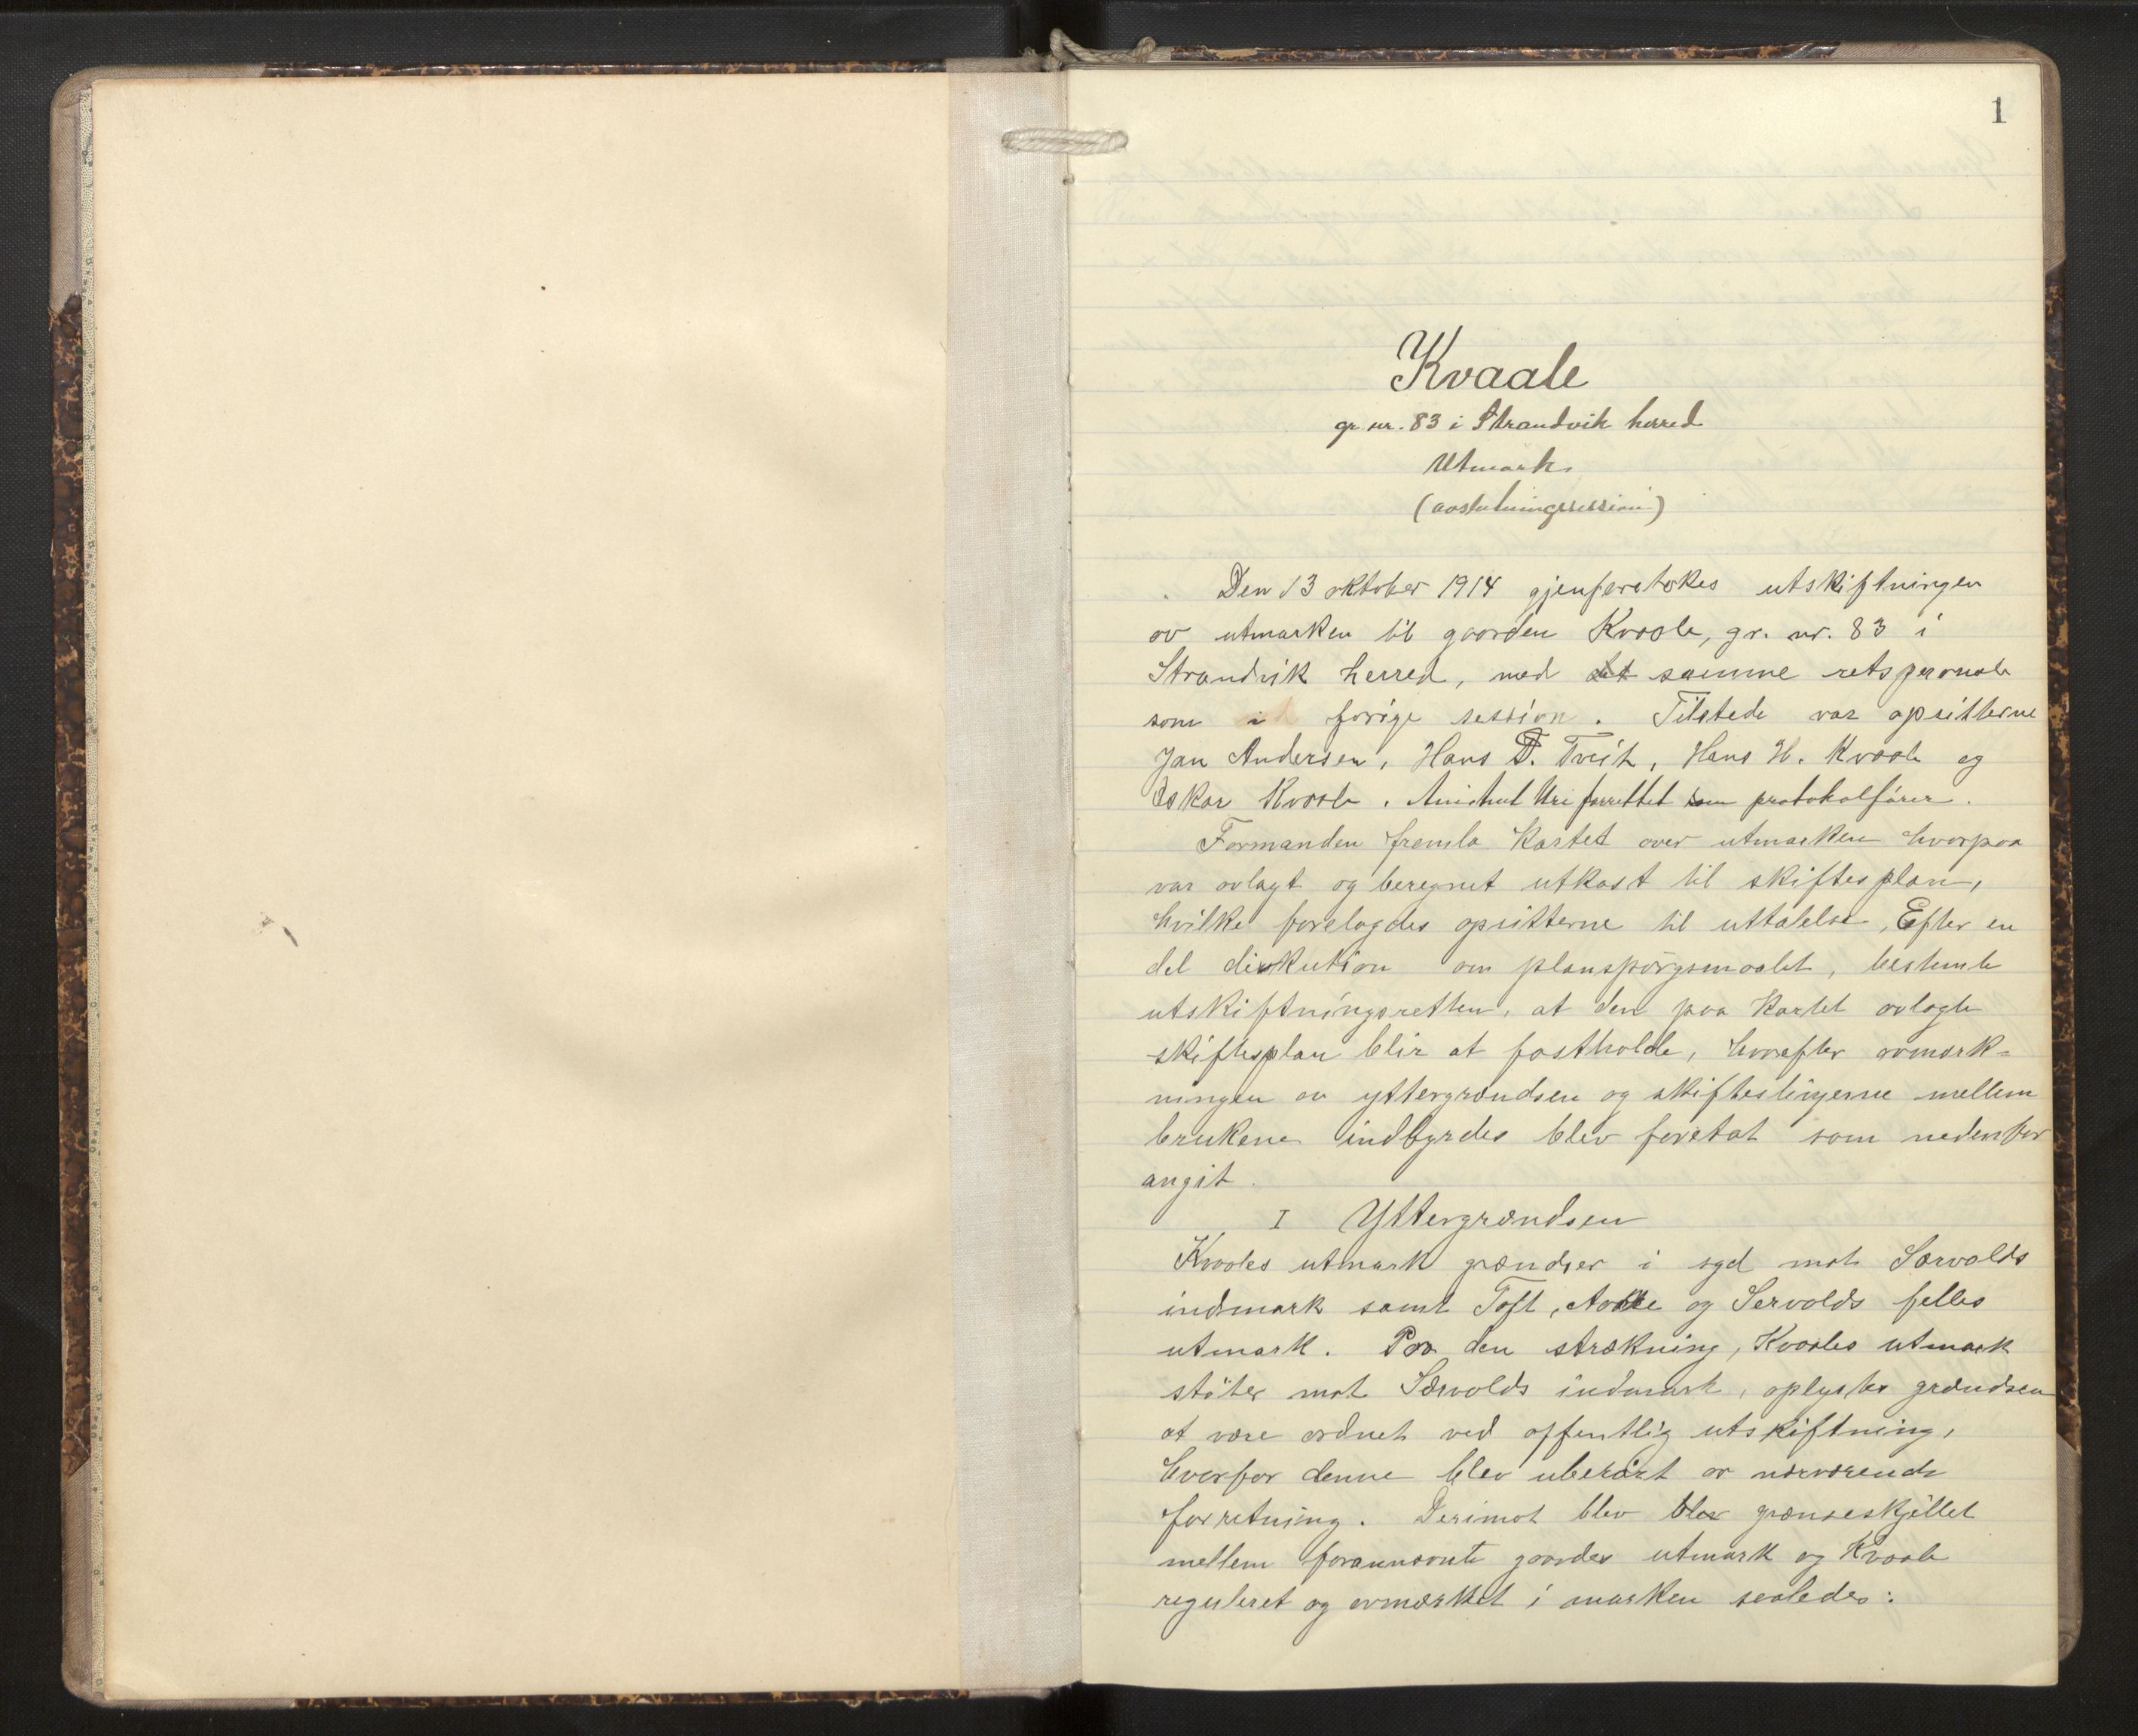 1
Kvaale
gr. nr. 83 i Strandvik herred
Utmark
(avslutningssession)
Den 13 oktober 1914 gjenforetokes utskiftningen
av utmarken til gaarden Kvaale, gr. nr. 83 i
Strandvik herred, med det samme retspersonale
som i forige session. Tilstede var opsitterne
Jan Andersen, Hans T. Tveit, Hans H. Kvaale og
Oskar Kvaale. Uri forrettet som protokolfører.
Formanden fremla kartet over utmarken hvorpaa
var avlagt og beregnet utkast til skiftesplan,
hvilke forelagdes opsitterne til uttalelse. Efter en
del diskution om planspörgsmaalet, bestemte
utskiftningsretten, at den paa kartet avlagte
skiftesplan blir at fastholde, hvorefter avmerk-
ningen av yttergrændsen og skifteslinjerne mellem
brukene indbyrdes blev foretat som nedenfor
angit.
I Yttergrændsen
Kvaales utmark grændser i syd mot Særvolds
indmark samt Toft, og Servolds felles
utmark. Paa den strækning, Kvaales utmark
stöter mot Særvolds indmark, oplystes grændsen
at være ordnet ved offentlig utskiftning,
hvorfor denne blev uberört av nærværende
forretning. Derimot blev blev grænseskjellet
mellem forannævnte gaardes utmark og Kvaale
reguleret og avmærket i marken saaledes: